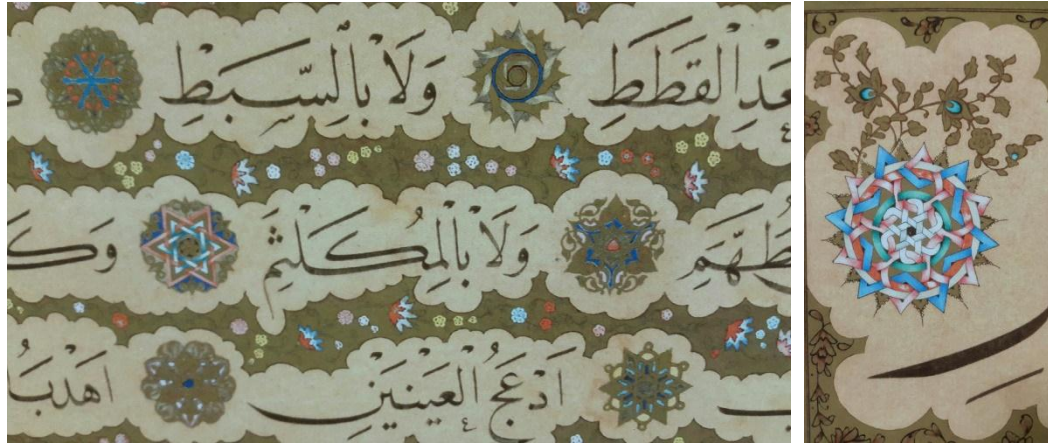 الْقَطَطِ وَلَا بِالسَّبْطِ
وَلَا بِالْمُكَلْثَمِ
اَدْعَجُ الْعَيْنَيْنِ اَهْدَبُ